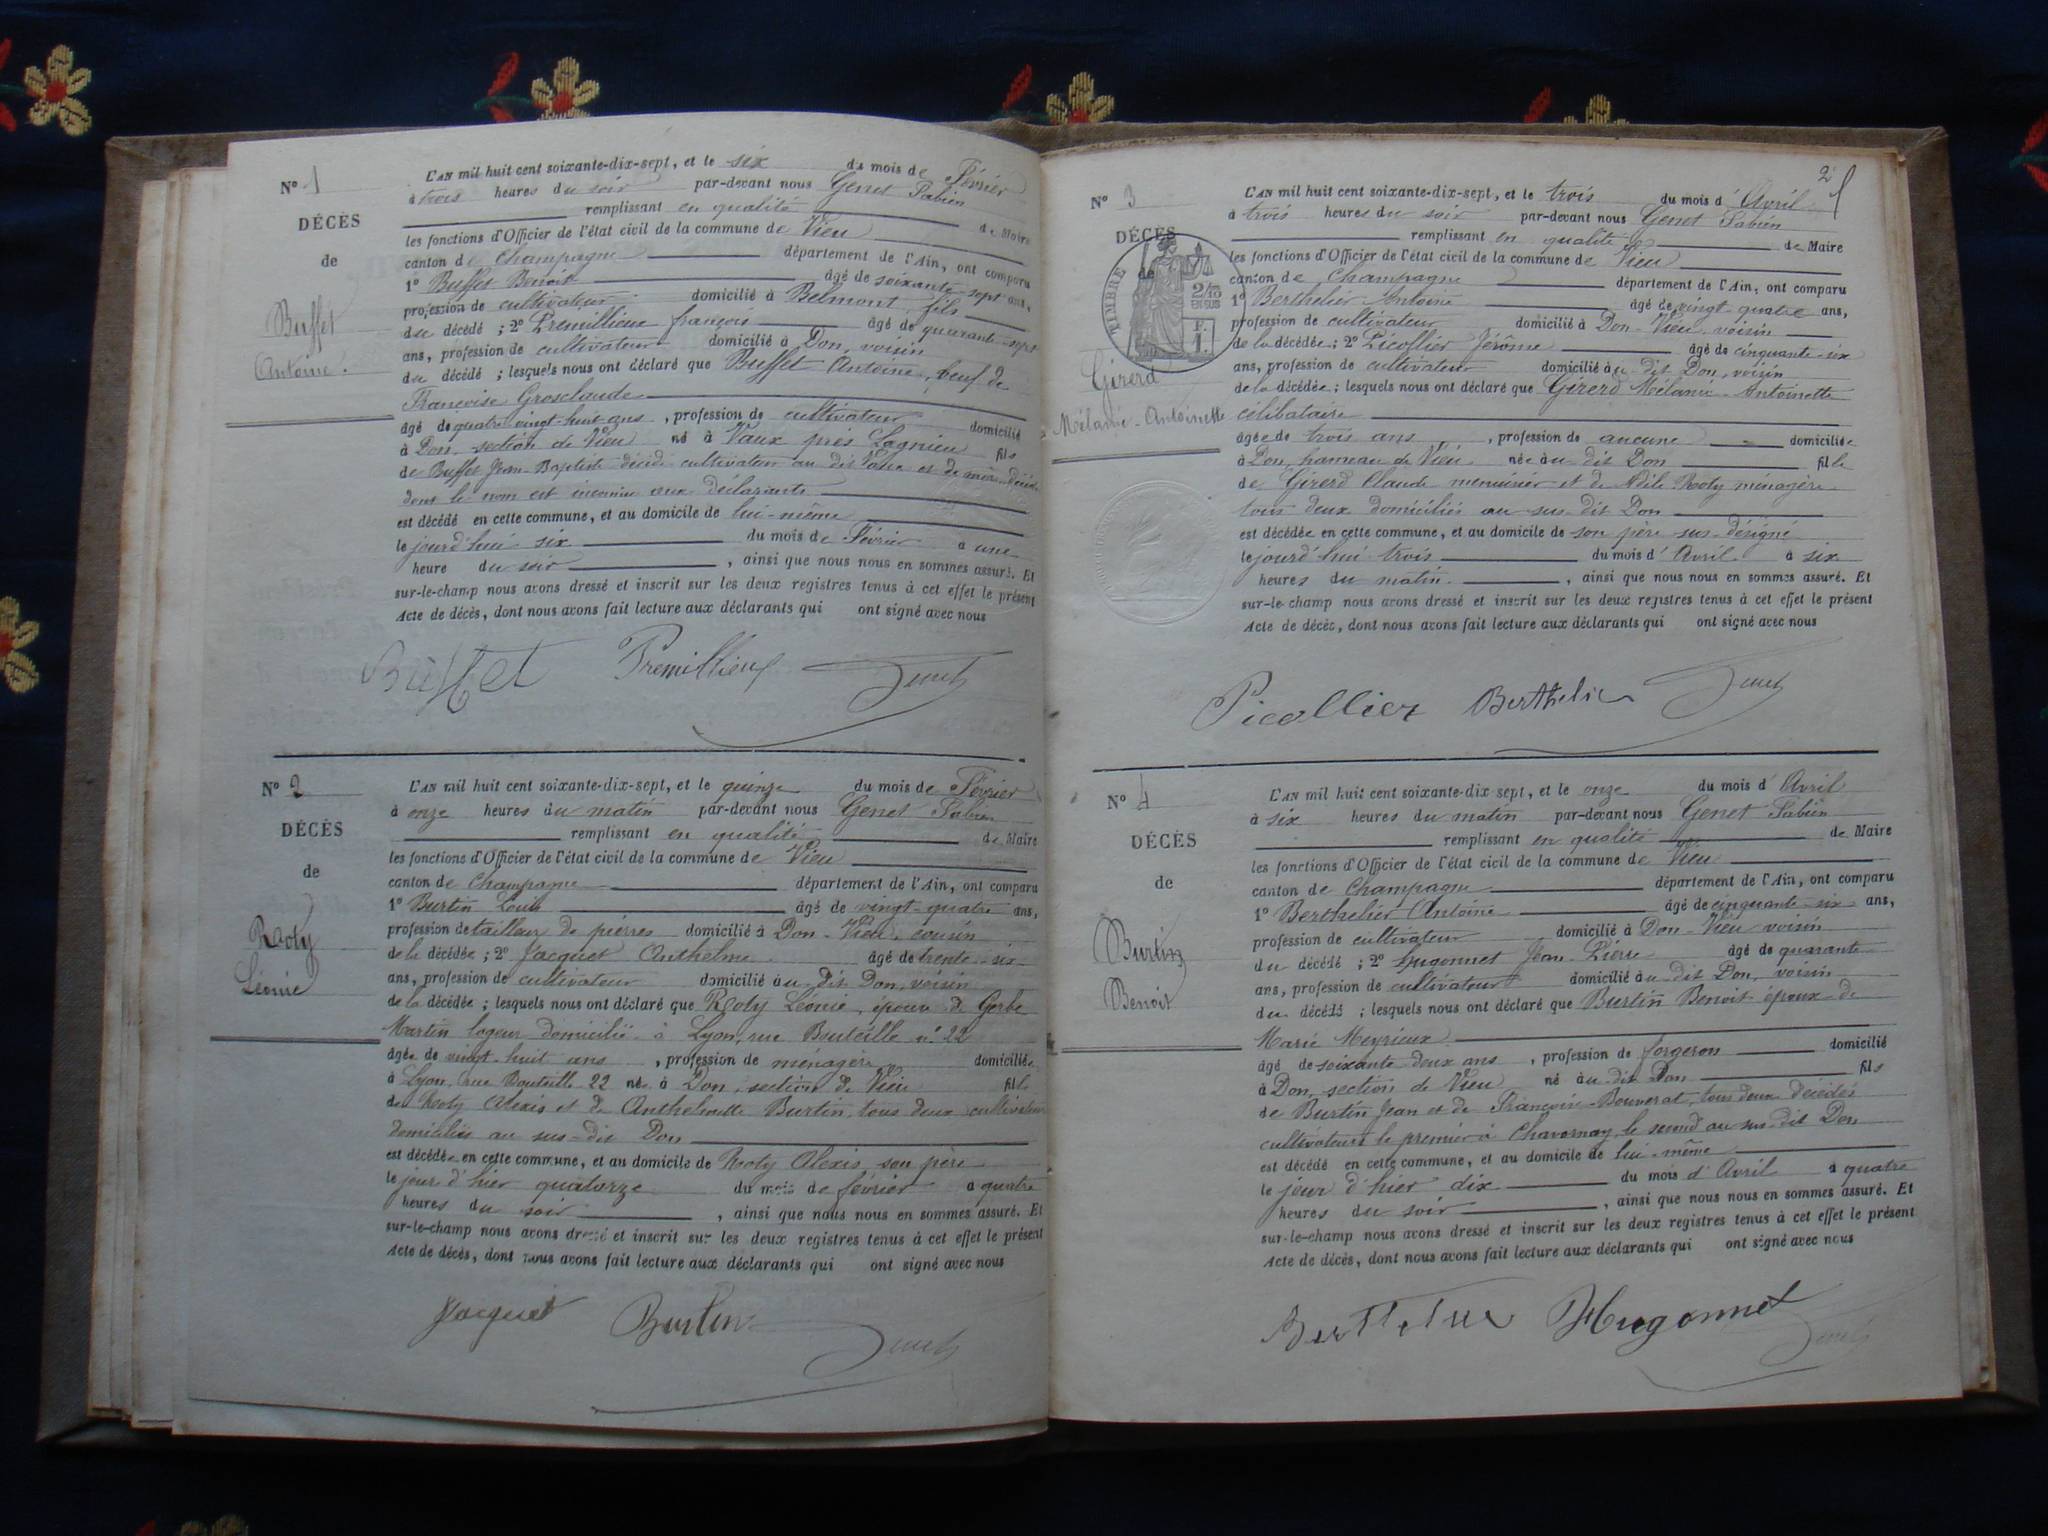 N° 1
DÉCÈS
de
Buffet
Antoine.
L'AN mil huit cent soixante-dix-sept, et le six du mois de Février
à trois heures du soir par-devant nous Genet Fabien
remplissant en qualité de Maire
les fonctions d'Officier de l'état civil de la commune de Vieu
canton de Champagne département de l'Ain, ont comparu
1° Buffet Benoit âgé de soixante-sept ans,
profession de cultivateur domicilié à Belmont, fils
du décédé ; 2° Premillieux françois âgé de quarante-sept
ans, profession de cultivateur domicilié à Don, voisin
du décédé ; lesquels nous ont déclaré que Buffet Antoine, veuf de
Françoise Grosclaude
âgé de quatre vingt-huit ans, profession de cultivateur domicilié
à Don, section de Vieu né à Vaux près Lagnieu fils
de Buffet Jean-Baptiste décédé cultivateur au dit Vaux et de mère décédée
dont le nom est inconnu aux déclarants
est décédé en cette commune, et au domicile de lui-même
le jourd'hui six du mois de Février à une
heure du soir, ainsi que nous nous en sommes assuré. Et
sur-le-champ nous avons dressé et inscrit sur les deux registres tenus à cet effet le présent
Acte de décès, dont nous avons fait lecture aux déclarants qui ont signé avec nous
Buffet Premillieux Genet
N° 2
DÉCÈS
de
Rooty
Léonie
L'AN mil huit cent soixante-dix-sept, et le quinze du mois de Février
à onze heures du matin par-devant nous Genet Fabien
remplissant en qualité de Maire
les fonctions d'Officier de l'état civil de la commune de Vieu
canton de Champagne département de l'Ain, ont comparu
1° Burtin Louis âgé de vingt-quatre ans,
profession de tailleur de pierres domicilié à Don-Vieu, cousin
de la décédée ; 2° Jacquet Anthelme âgé de trente-six
ans, profession de cultivateur domicilié au dit Don, voisin
de la décédée ; lesquels nous ont déclaré que Rooty Léonie, épouse de Gerbe
Martin logeur domicilié à Lyon, rue Bouteille n° 22
âgée de vingt-huit ans, profession de ménagère domiciliée
à Lyon, rue Bouteille 22 née à Don, section de Vieu fille
de Rooty Alexis et de Anthelmette Burtin, tous deux cultivateurs
domiciliés au sus-dit Don
est décédée en cette commune, et au domicile de Rooty Alexis son père
le jour d'hier quatorze du mois de février à quatre
heures du soir, ainsi que nous nous en sommes assuré. Et
sur-le-champ nous avons dressé et inscrit sur les deux registres tenus à cet effet le présent
Acte de décès, dont nous avons fait lecture aux déclarants qui ont signé avec nous
Jacquet Burtin Genet
2
N° 3
DÉCÈS
de
TIMBRE
2/10
EN SUS
F.
1
Girerd
Mélanie-Antoinette
L'AN mil huit cent soixante-dix-sept, et le trois du mois d'Avril
à trois heures du soir par-devant nous Genet Fabien
remplissant en qualité de Maire
les fonctions d'Officier de l'état civil de la commune de Vieu
canton de Champagne département de l'Ain, ont comparu
1° Berthelier Antoine âgé de vingt-quatre ans,
profession de cultivateur domicilié à Don-Vieu, voisin
de la décédée ; 2° Picollier Jérôme âgé de cinquante-six
ans, profession de cultivateur domicilié au dit Don, voisin
de la décédée ; lesquels nous ont déclaré que Girerd Mélanie-Antoinette
célibataire
âgée de trois ans, profession de aucune domiciliée
à Don, hameau de Vieu née au dit Don fille
de Girerd Claude menuisier et de Adèle Rooty ménagère
tous deux domiciliés au sus-dit Don
est décédée en cette commune, et au domicile de son père sus-désigné
le jourd'hui trois du mois d'Avril à six
heures du matin, ainsi que nous nous en sommes assuré. Et
sur-le-champ nous avons dressé et inscrit sur les deux registres tenus à cet effet le présent
Acte de décès, dont nous avons fait lecture aux déclarants qui ont signé avec nous
Picollier Berthelier Genet
N° 4
DÉCÈS
de
Burtin
Benoit
L'AN mil huit cent soixante-dix sept, et le onze du mois d'Avril
à six heures du matin par-devant nous Genet Fabien
remplissant en qualité de Maire
les fonctions d'Officier de l'état civil de la commune de Vieu
canton de Champagne département de l'Ain, ont comparu
1° Berthelier Antoine âgé de cinquante-six ans,
profession de cultivateur domicilié à Don-Vieu voisin
du décédé ; 2° Hugonnet Jean-Pierre âgé de quarante
ans, profession de cultivateur domicilié au dit Don, voisin
du décédé ; lesquels nous ont déclaré que Burtin Benoit époux de
Marie Meyrieux
âgé de soixante deux ans, profession de forgeron domicilié
à Don, section de Vieu né au dit Don fils
de Burtin Jean et de Françoise Bouverat, tous deux décédés
cultivateurs le premier à Chavornay, le second au sus-dit Don
est décédé en cette commune, et au domicile de lui-même
le jour d'hier dix du mois d'Avril à quatre
heures du soir, ainsi que nous nous en sommes assuré. Et
sur-le-champ nous avons dressé et inscrit sur les deux registres tenus à cet effet le présent
Acte de décès, dont nous avons fait lecture aux déclarants qui ont signé avec nous
Berthelier Hugonnet Genet